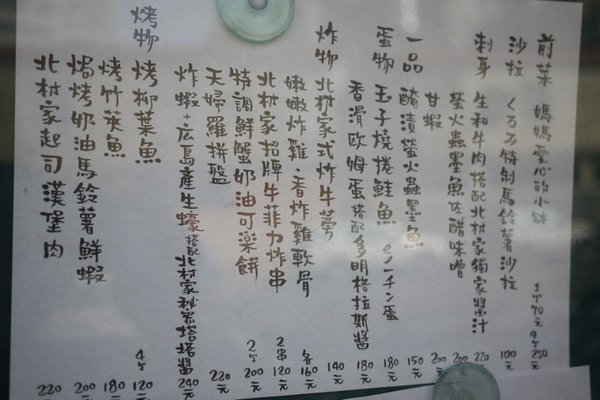 前菜 媽媽愛心的小缽 1ケ70元 4ケ250元
沙拉 くるみ特制馬鈴薯沙拉 100元
刺身 生和牛肉搭配北村家獨家醬汁 220
螢火蟲墨魚佐醋味噌 200元
甘蝦 200元
一品 醃漬螢火蟲墨魚 150元
蛋物 玉子燒捲鮭魚 180元
香滑欧姆蛋搭配多明格拉斯醬 180元
炸物 北村家式炸牛蒡 140元
嫩嫩炸雞・香炸雞軟骨 各160元
北村家招牌牛菲力炸串 2串120元
特調鮮蟹奶油可樂餅 2ケ200元
天婦羅拼盤 220元
炸蝦+広島產生蠔搭配北村家秘密塔塔醬 240元
烤物 烤柳葉魚 4ケ120元
烤竹莢魚 180元
焗烤奶油馬鈴薯鮮蝦 200元
北村家起司漢堡肉 220